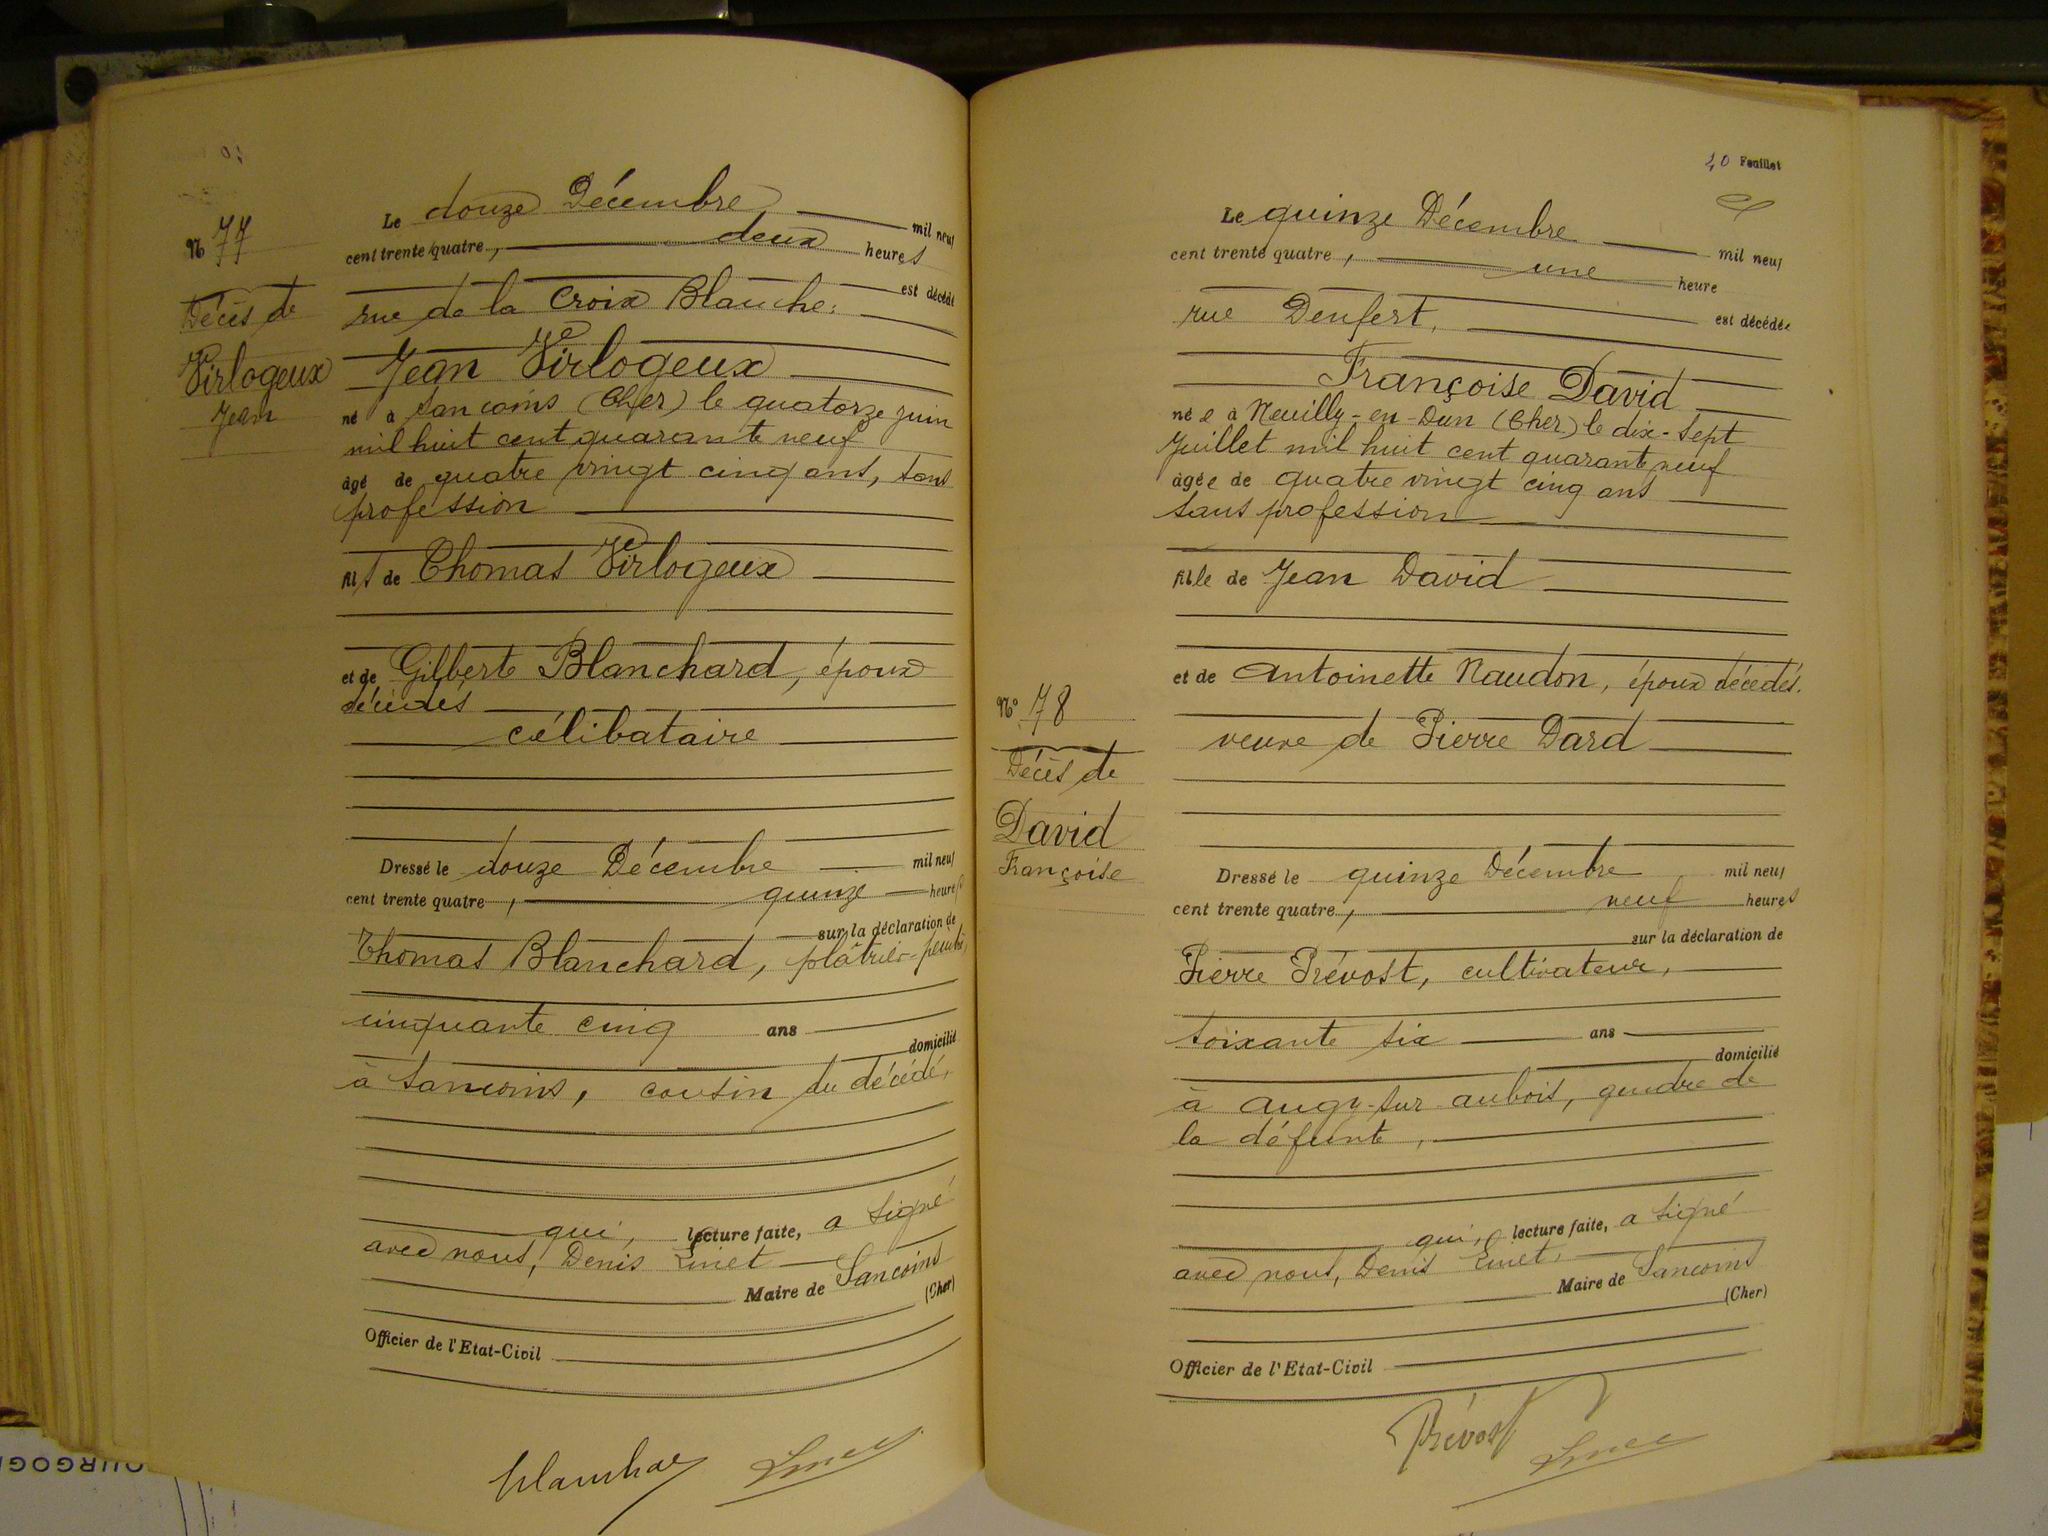 N 77
Décès de
Virlogeux
Jean
Le douze Décembre mil neuf
cent trente quatre, deux heures
est décédé
rue de la Croix Blanche:
Jean Virlogeux
né à Sancoins (Cher) le quatorze juin
mil huit cent quarante neuf
âgé de quatre vingt cinq ans, sans
profession
fils de Thomas Virlogeux
et de Gilberte Blanchard, époux
décédés
célibataire
Dressé le douze Décembre mil neuf
cent trente quatre, quinze heures
sur la déclaration de
Thomas Blanchard, plâtrier-peintre,
cinquante cinq ans
domicilié
à Sancoins, cousin du décédé,
qui, lecture faite, a signé
avec nous, Denis
Maire de Sancoins
(Cher)
Officier de l'Etat-Civil
40 Feuillet
N° 78
Décès de
David
Françoise
Le quinze Décembre mil neuf
cent trente quatre, une heure
rue Denfert, est décédée
Françoise David
née à Neuilly-en-Dun (Cher) le dix-sept
Juillet mil huit cent quarante neuf
âgée de quatre vingt cinq ans
sans profession
fille de Jean David
et de Antoinette Naudon, époux décédés.
veuve de Pierre Dard
Dressé le quinze Décembre mil neuf
cent trente quatre, neuf heures
sur la déclaration de
Pierre Prévost, cultivateur,
soixante six ans
domicilié
à Augy-sur-aubois, gendre de
la défunte,
qui, lecture faite, a signé
avec nous, Denis
Maire de Sancoins
(Cher)
Officier de l'Etat-Civil
Prévost